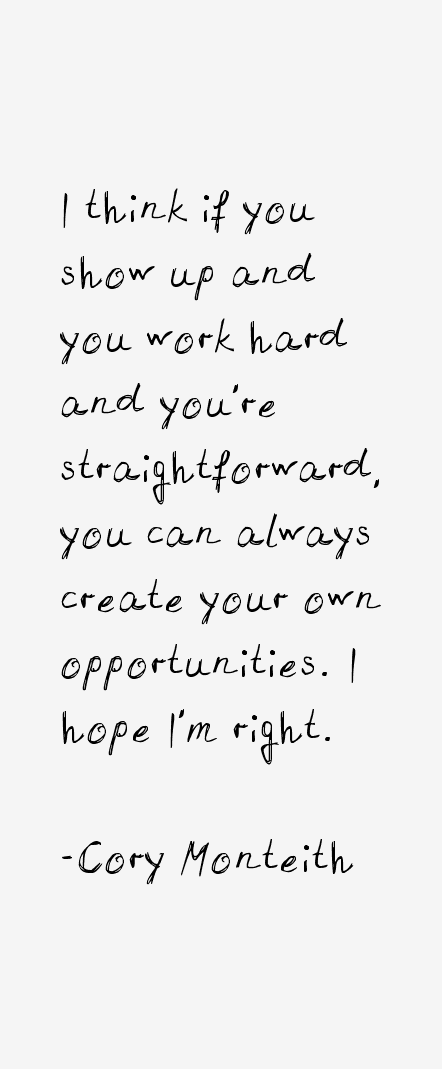 I think if you
show up and
you work hard
and you're
straightforward,
you can always
create your own
opportunities. I
hope I'm right.
-Cory Monteith